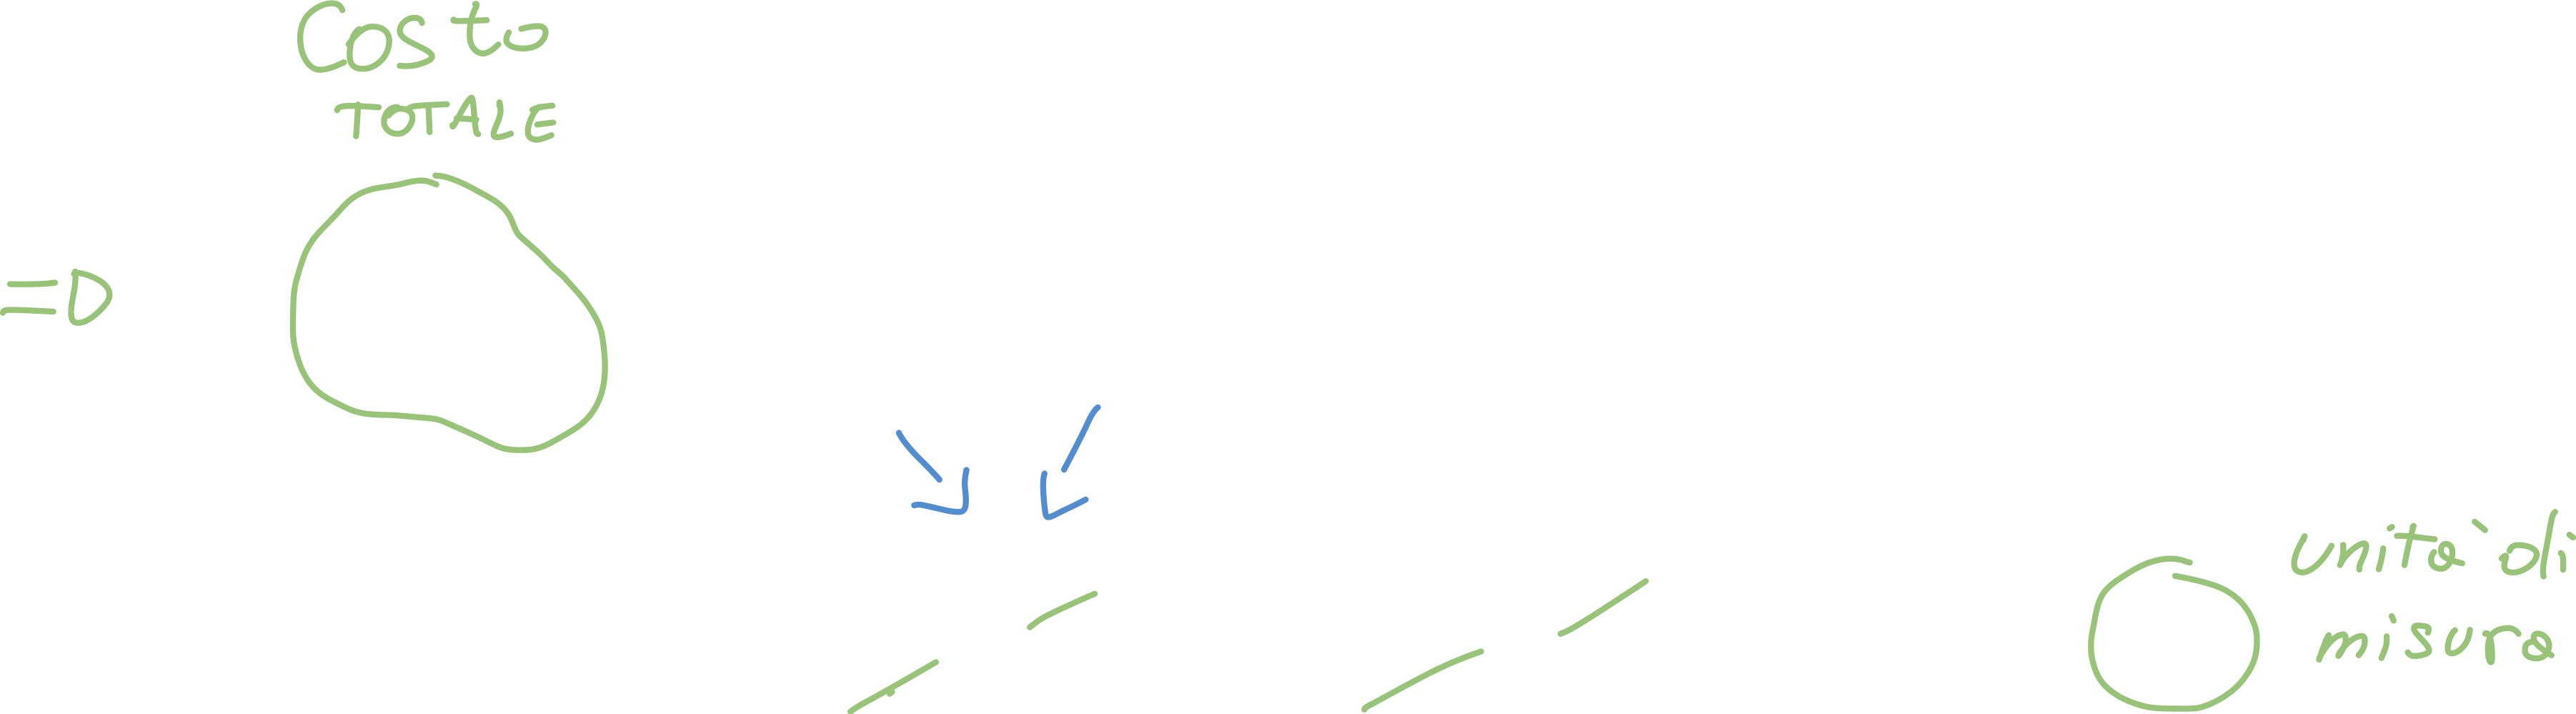 Costo
TOTALE
=D
unità di
misura